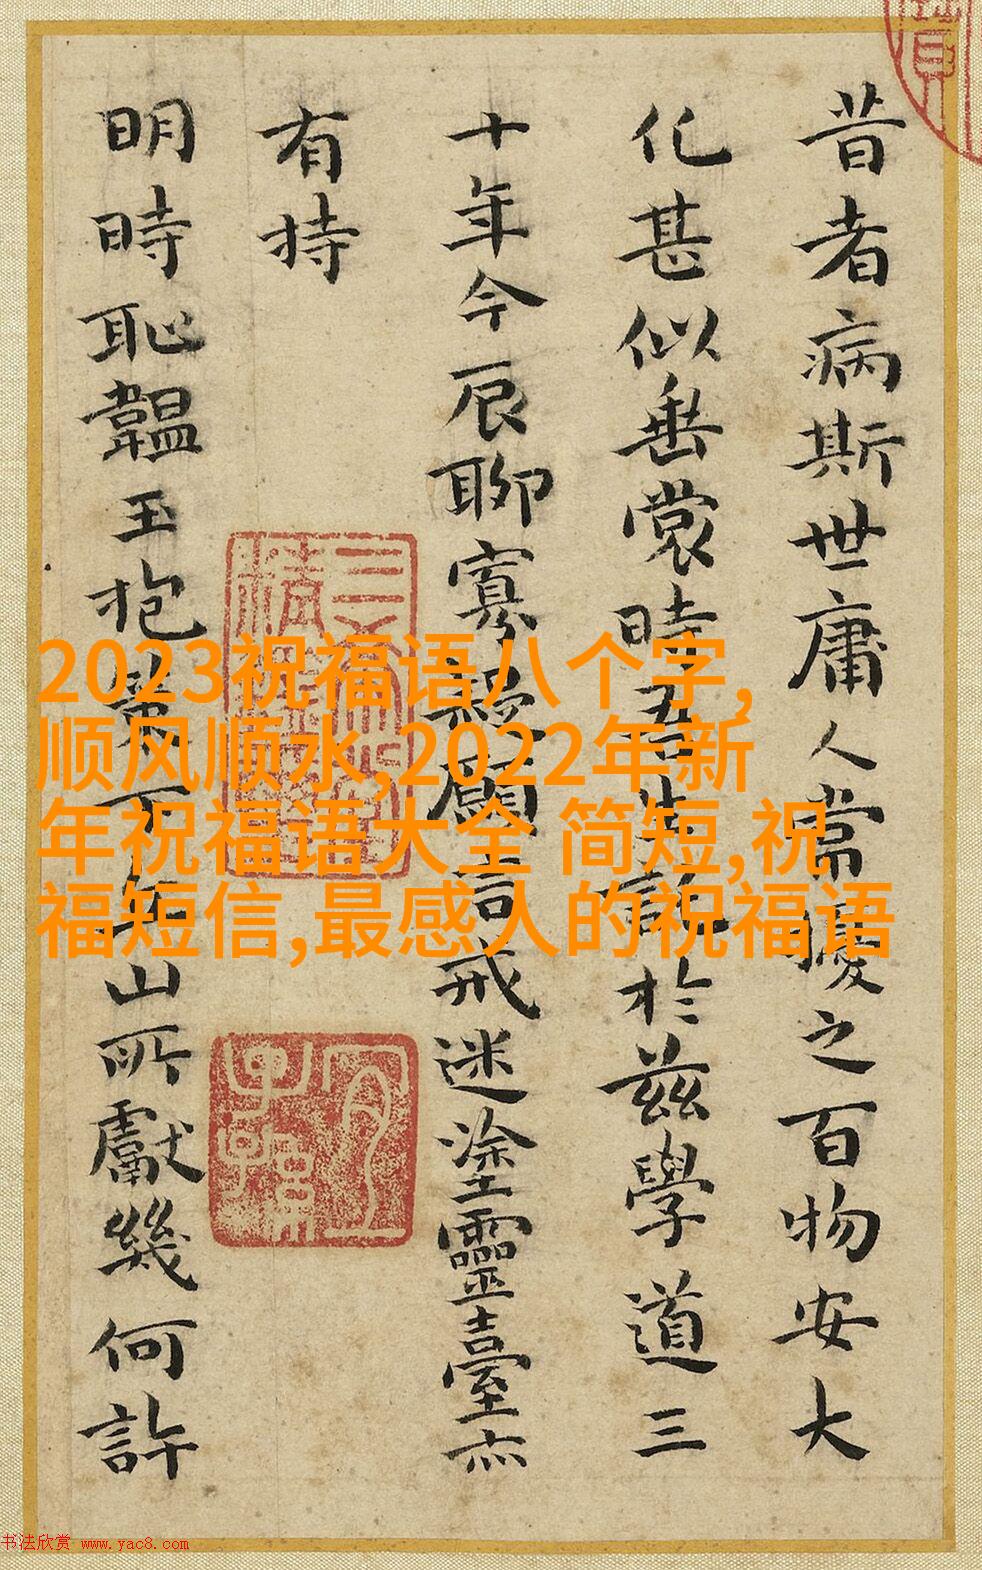 昔者病斯世庸人常擾之百物安大
化甚似垂裳時吾生託於茲學道三
十年今辰聊寡過願言戒迷塗靈臺亦
有持
明時恥韞玉抱策下山所獻幾何許
2023祝福语八个字,
顺风顺水,2022年新
年祝福语大全 简短,祝
福短信,最感人的祝福语
书法欣赏 www.yac8.com